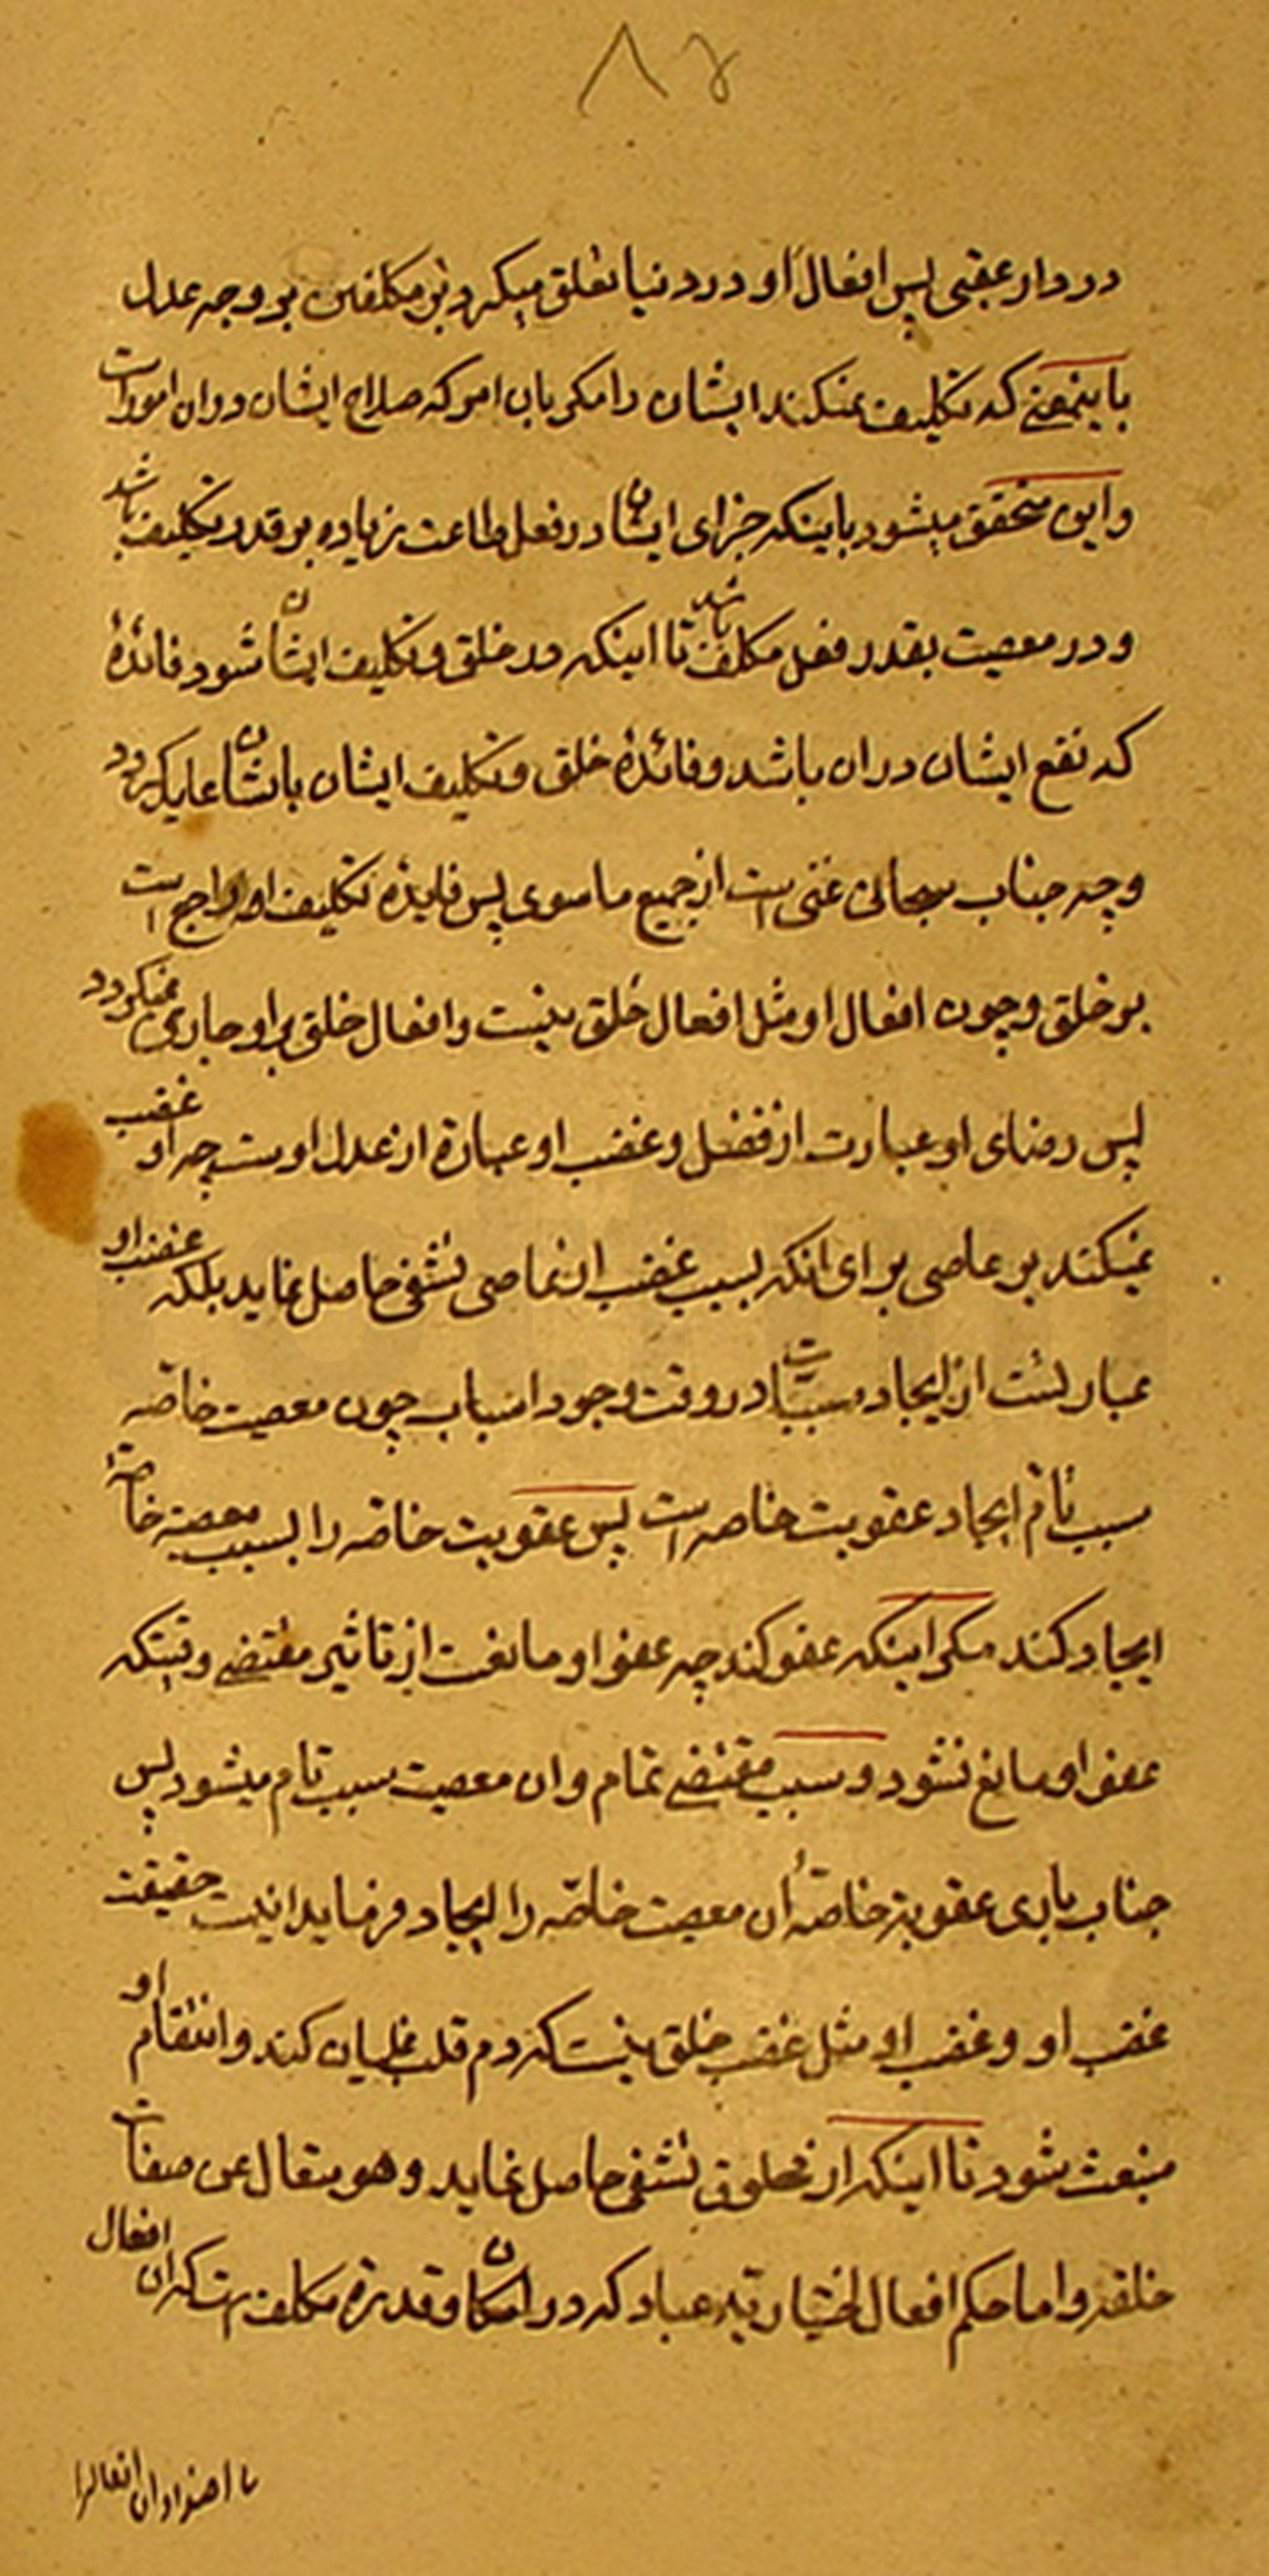 ۸۵
در دار عقبی پس افعال او در دنیا تعلق میگیرد بر مکلفین بر وجه عدل
باینمعنی که تکلیف نمیکند ایشان را مکر بان امر که صلاح ایشان دران امور است
واین متحقق میشود باینکه جزای ایشان در فعل طاعت زیاده بر قدر تکلیف باشد
و در معصیت بقدر فعل مکلف باشد تا اینکه در خلق و تکلیف ایشان شود فائدهٔ
که نفع ایشان دران باشد و فائدهٔ خلق و تکلیف ایشان بایشان عاید کردد
و چه جناب سبحانی غنی است از جمیع ما سوی پس فایده تکلیف او راجع است
بر خلق و چون افعال او مثل افعال خلق نیست و افعال خلق بر او جاری نمیکردد
پس رضای او عبارت از فضل و غضب او عبارة از عدل اوست چه او غضب
نمیکند بر عاصی برای انکه بسبب غضب از عاصی تشفی حاصل نماید بلکه غضب او
عبارتست از ایجاد مسببات در وقت وجود اسباب چون معصیت خاصه
سبب تام ایجاد عقوبت خاصه است پس عقوبت خاصه را بسبب معصیة خاصهٔ
ایجاد کند مکر اینکه عفو کند چه عفو او مانعست از تاثیر مقتضی وقتیکه
عفو او مانع نشود و سبب مقتضی تمام وان معصیت سبب تام میشود پس
جناب باری عقوبة خاصهٔ ان معصیت خاصه را ایجاد فرماید اینست حقیقت
غضب او و غضب او مثل غضب خلق نیست که دم قلب غلیان کند و انتقام او
منبعث شود تا اینکه از مخلوق تشفی حاصل نماید و هو متعال عن صفات
خلقه و اما حکم افعال اختیاریه عباد که در امکان و قدرة مکلف است که ان افعال
یا اضداد ان افعالرا